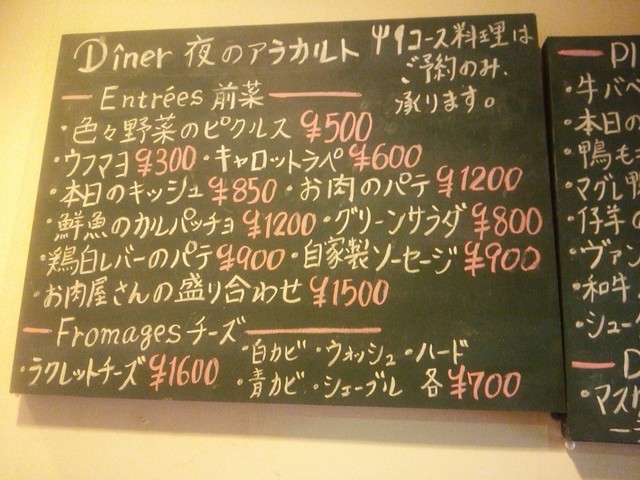 Dîner 夜のアラカルト
コース料理は
ご予約のみ、
承ります。
Entrées 前菜
・色々野菜のピクルス ¥500
・ウフマヨ ¥300 ・キャロットラペ ¥600
・本日のキッシュ ¥850 ・お肉のパテ ¥1200
・鮮魚のカルパッチョ ¥1200 ・グリーンサラダ ¥800
・鶏白レバーのパテ ¥900 ・自家製ソーセージ ¥900
・お肉屋さんの盛り合わせ ¥1500
Fromages チーズ
・ラクレットチーズ ¥1600
・白カビ ・ウォッシュ ・ハード
・青カビ ・シェーブル 各 ¥700
Pl
・牛バベ
・本日の
・鴨も
・マグレ鴨
・仔羊
・ヴァン
・和牛
・シュー
D
・マスク